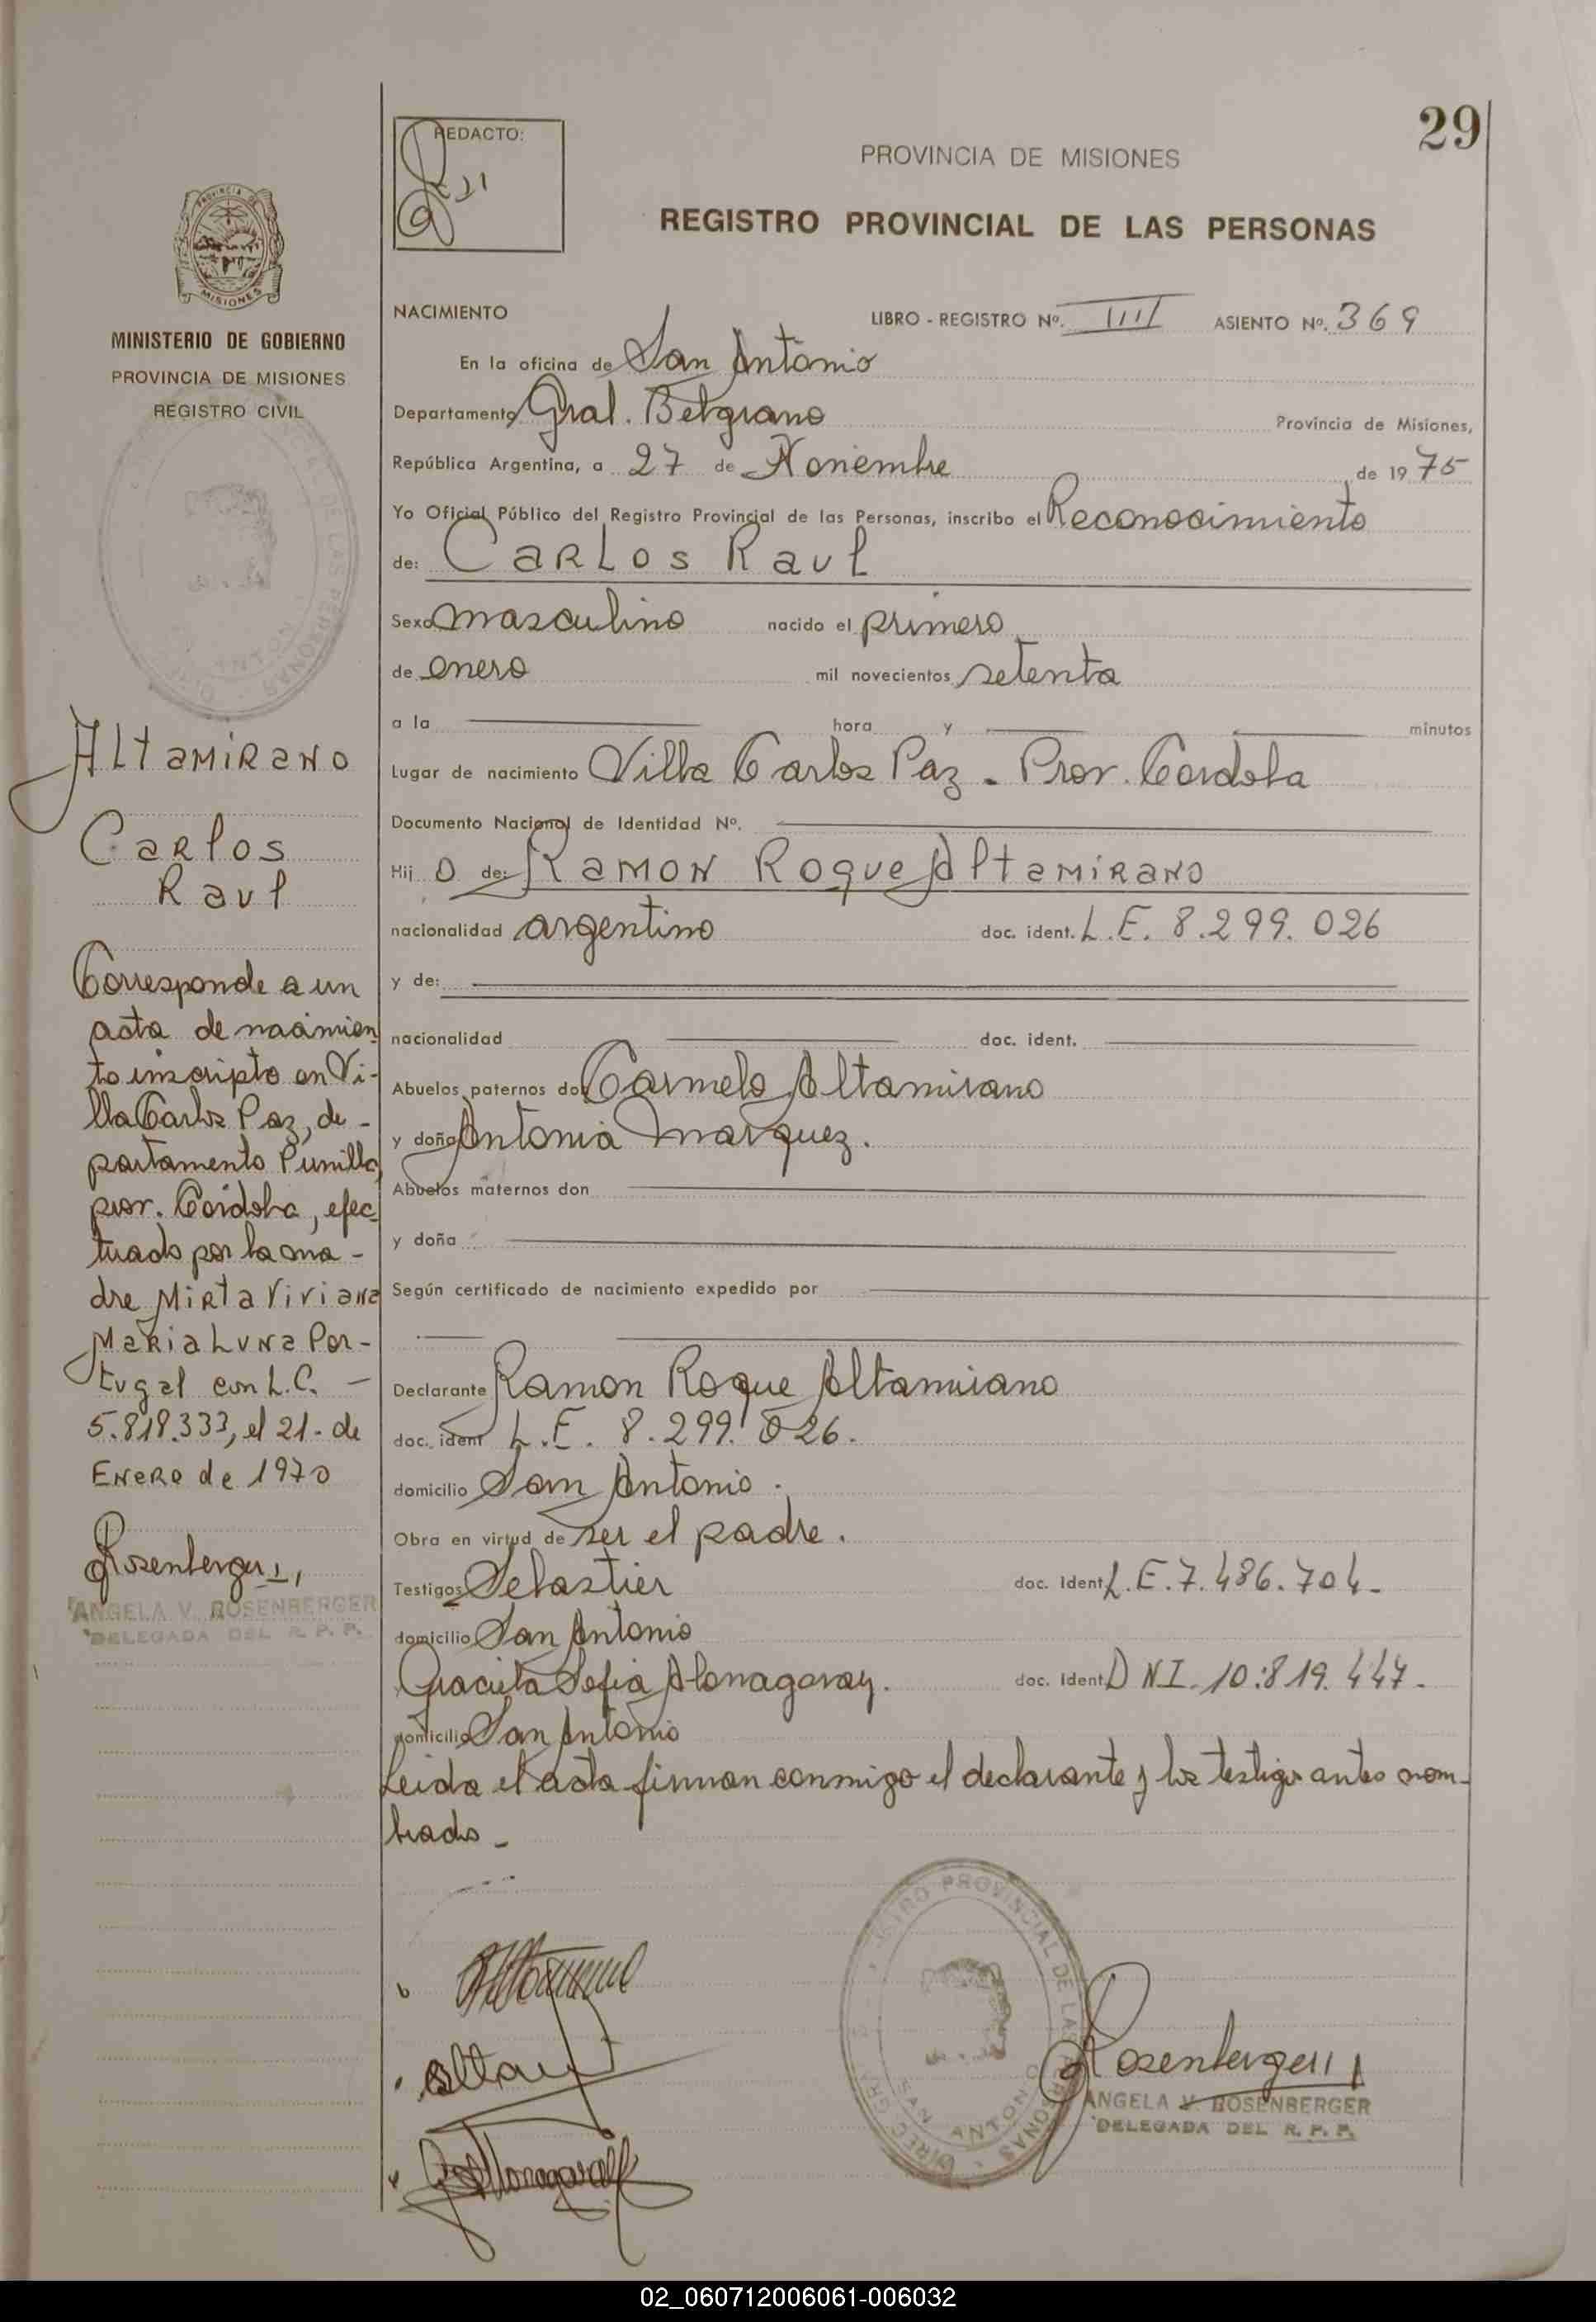 29
REDACTO:
PROVINCIA DE MISIONES
REGISTRO PROVINCIAL DE LAS PERSONAS
MISIONES
MINISTERIO DE GOBIERNO
PROVINCIA DE MISIONES
REGISTRO CIVIL
Altamirano
Carlos
Raul
Corresponde a un
acta de nacimien
to inscripto en Vi-
lla Carlos Paz, de-
partamento Punilla,
prov. Córdoba, efec
tuado por la ma-
dre Mirta Viviana
Maria Luna Por-
tugal con L.C. -
5.819.333, el 21. de
Enero de 1970
Rosenberger
ANGELA V. ROSENBERGER
DELEGADA DEL R. P. P.
NACIMIENTO LIBRO - REGISTRO Nº. IIII ASIENTO Nº. 369
En la oficina de San Antonio
Departamento Gral. Belgrano Provincia de Misiones,
República Argentina, a 27 de Noviembre de 1975
Yo Oficial Público del Registro Provincial de las Personas, inscribo el Reconocimiento
de: Carlos Raul
Sexo masculino nacido el primero
de enero mil novecientos setenta
a la hora y minutos
Lugar de nacimiento Villa Carlos Paz - Prov. Cordoba
Documento Nacional de Identidad Nº.
Hij o de: Ramon Roque Altamirano
nacionalidad argentino doc. ident. L.E. 8.299.026
y de:
nacionalidad doc. ident.
Abuelos paternos don Carmelo Altamirano
y doña Antonia Marquez.
Abuelos maternos don
y doña
Según certificado de nacimiento expedido por
Declarante Ramon Roque Altamirano
doc. ident L.E. 8.299.026.
domicilio San Antonio.
Obra en virtud de ser el padre.
Testigos Sebastier doc. Ident L.E. 7.486.704-
domicilio San Antonio
Graciela Sofia Alonagaray. doc. Ident DNI. 10.819.447.
domicilio San Antonio
Leida el acta firman conmigo el declarante y los testigos antes nom-
brados-
REGISTRO PROVINCIAL DE LAS PERSONAS
SAN ANTONIO
Rosenberger
ANGELA V. ROSENBERGER
DELEGADA DEL R. P. P.
02_060712006061-006032